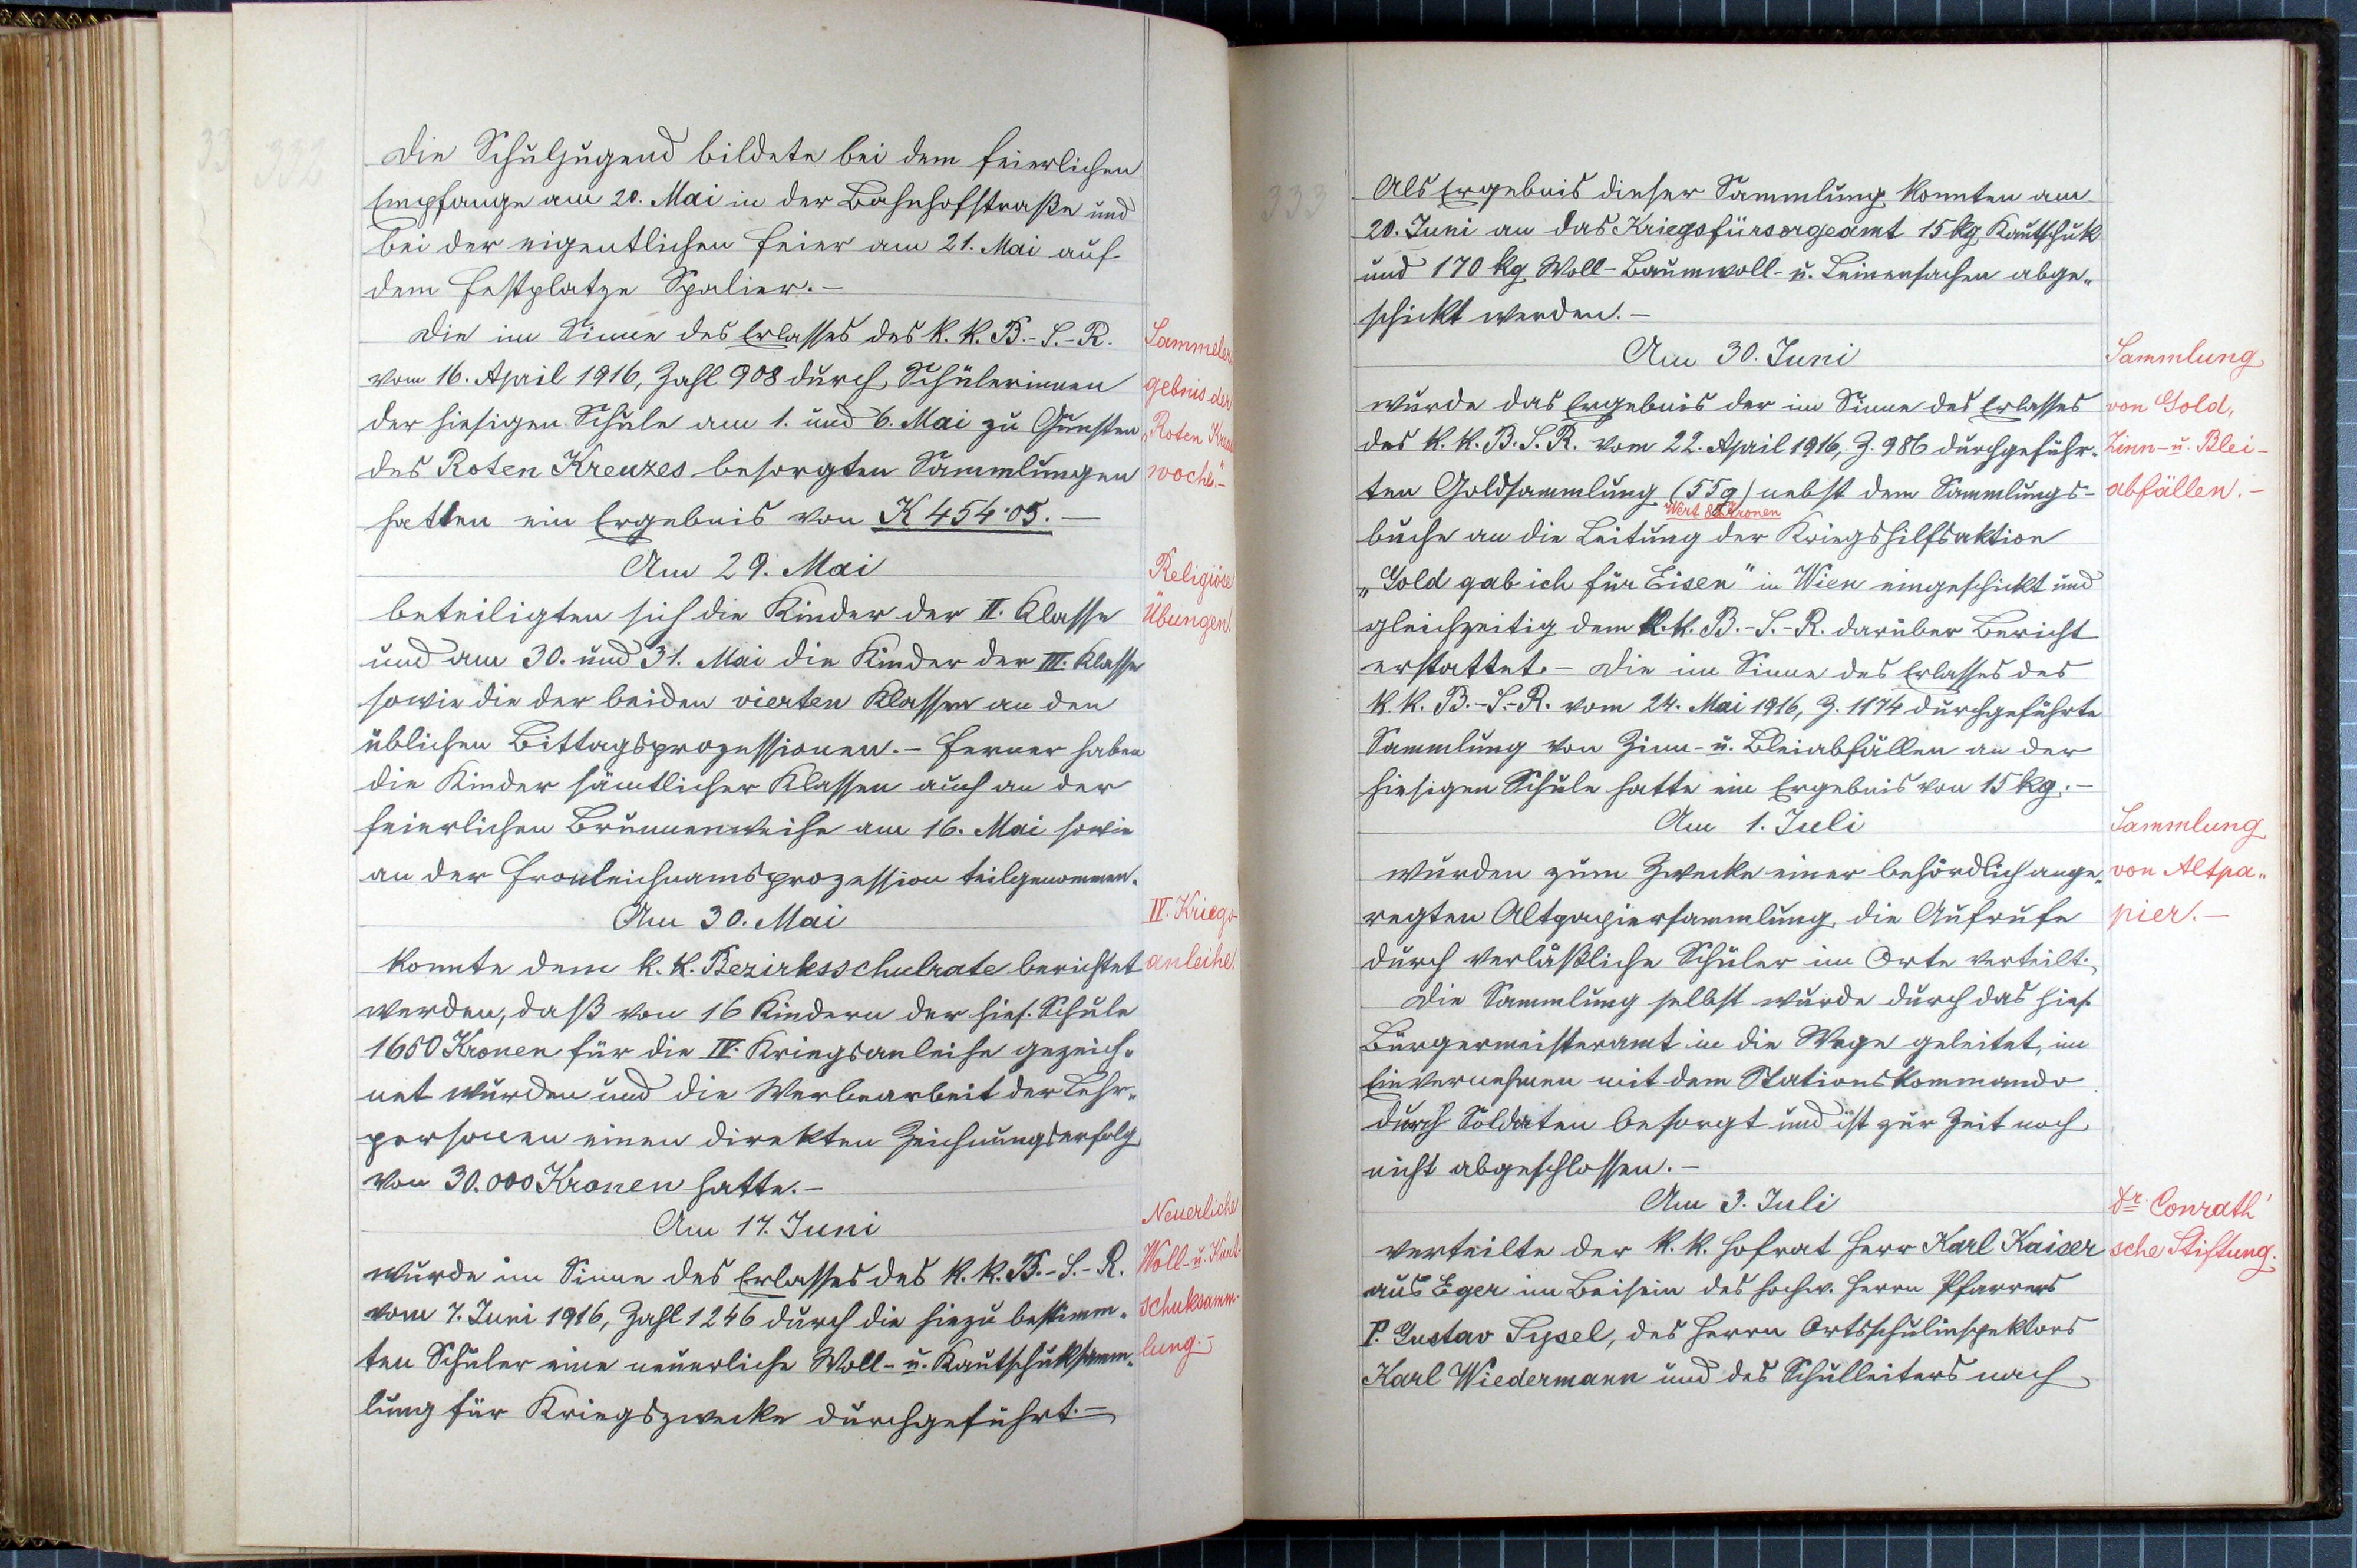 332
Die Schuljugend bildete bei dem feierlichen
Empfange am 20. Mai in der Bahnhofstraße und
bei der eigentlichen Feier am 21. Mai auf
dem Festplatze Spalier. –
Die im Sinne des Erlasses des k. k. B.-S.-R.
vom 16. April 1916, Zahl 908 durch Schülerinnen
der hiesigen Schule am 1. und 6. Mai zu Gunsten
des Roten Kreuzes besorgten Sammlungen
hatten ein Ergebnis von K 454·05. –
Sammeler
gebnis der
„Roten Kreuz
woche." –
Am 29. Mai
beteiligten sich die Kinder der II. Klasse
und am 30. und 31. Mai die Kinder der III. Klasse
sowie die der beiden vierten Klassen an den
üblichen Bittagsprozessionen. – Ferner haben
die Kinder sämtlicher Klassen auch an der
feierlichen Brunnenweihe am 16. Mai sowie
an der Fronleichnamsprozession teilgenommen.
Religiöse
Übungen.
Am 30. Mai
konnte dem k. k. Bezirksschulrate berichtet
werden, daß von 16 Kindern der hies. Schule
1650 Kronen für die IV. Kriegsanleihe gezeich„
net wurden und die Werbearbeit der Lehr„
personen einen direkten Zeichnungserfolg
von 30.000 Kronen hatte. –
IV. Kriegs-
anleihe.
Am 17. Juni
wurde im Sinne des Erlasses des k. k. B.-S.-R.
vom 7. Juni 1916, Zahl 1246 durch die hiezu bestimm„
ten Schüler eine neuerliche Woll- u. Kautschuksamm„
lung für Kriegszwecke durchgeführt. –
Neuerliche
Woll- u. Kaut-
schuksamm-
lung. –
333
Als Ergebnis dieser Sammlung konnten am
20. Juni an das Kriegsfürsorgeamt 15 kg Kautschuk
und 170 kg Woll- Baumwoll- u. Leinensachen abge„
schickt werden. –
Am 30. Juni
wurde das Ergebnis der im Sinne des Erlasses
des k. k. B. S. R. vom 22. April 1916, Z. 986 durchgeführ„
ten Goldsammlung (55g) nebst dem Sammlungs-
Wert Kronen
buche an die Leitung der Kriegshilfsaktion
„Gold gab ich für Eisen" in Wien eingeschickt und
gleichzeitig dem k. k. B.-S.-R. darüber Bericht
erstattet. – Die im Sinne des Erlasses des
k. k. B.-S.-R. vom 24. Mai 1916, Z. 1174 durchgeführte
Sammlung von Zinn- u. Bleiabfällen an der
hiesigen Schule hatte ein Ergebnis von 15 kg. –
Sammlung
von Gold,
Zinn- u. Blei-
abfällen. –
Am 1. Juli
wurden zum Zwecke einer behördlich ange„
regten Altpapiersammlung die Aufrufe
durch verläßliche Schüler im Orte verteilt.
Die Sammlung selbst wurde durch das hies.
Bürgermeisteramt in die Wege geleitet, im
Einvernehmen mit dem Stationskommando
durch Soldaten besorgt und ist zur Zeit noch
nicht abgeschlossen. –
Sammlung
von Altpa„
pier. –
Am 3. Juli
verteilte der k. k. Hofrat Herr Karl Kaiser
aus Eger im Beisein des hochw. Herrn Pfarrers
P. Gustav Sysel, des Herrn Ortsschulinspektors
Karl Wiedermann und des Schulleiters nach
Dr. Conrath'
sche Stiftung.